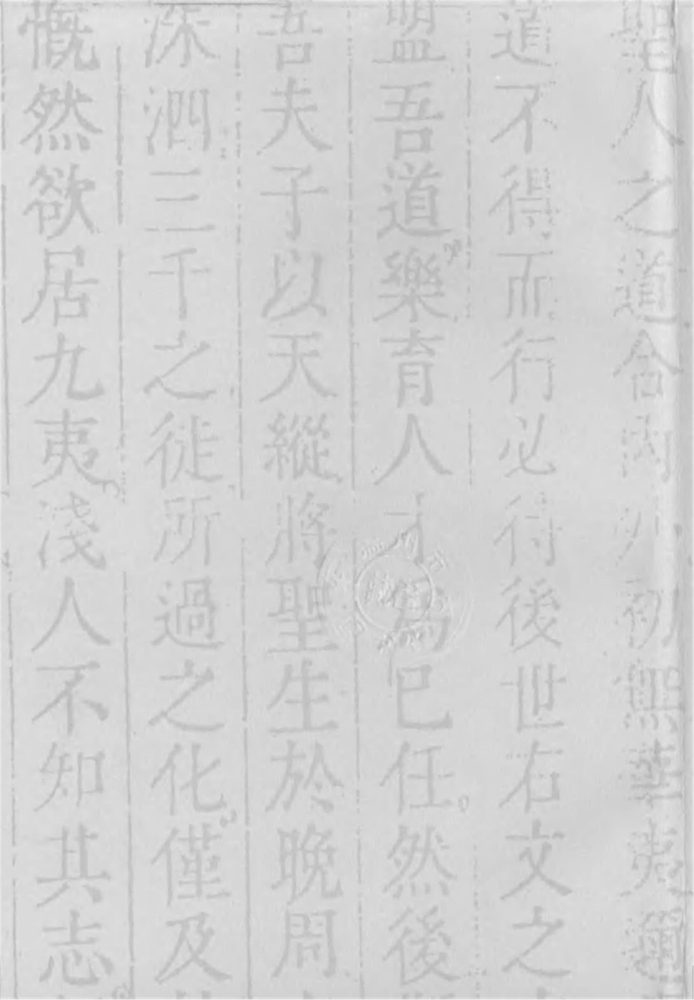 聖人之道合內外初無華夷彊
道不得而行必待後世右文之
盟吾道樂育人才為己任然後
吾夫子以天縱將聖生於晚周
洙泗三千之徒所過之化僅及
慨然欲居九夷淺人不知其志